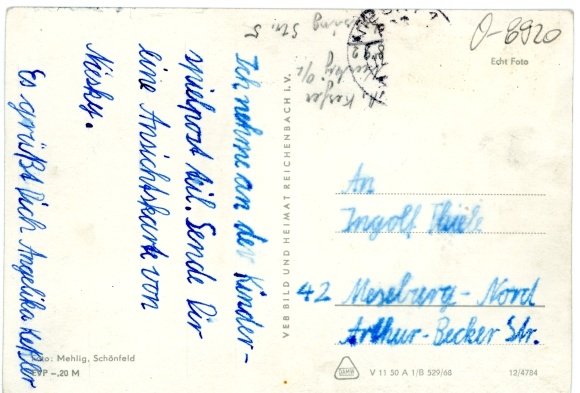 O-8920
Echt Foto
Str. 5
Ich nehme an der Kinder-
spielport teil. Sende Dir
eine Ansichtskarte von
Niesky.
Es grüßt Dich Angelika Keßler
VEB BILD UND HEIMAT REICHENBACH I.V.
An
Ingolf Thiele
42 Meseburg - Nord
Arthur-Becker Str.
Foto: Mehlig, Schönfeld
EVP -,20 M
DAMW
V 11 50 A 1/B 529/68
12/4784